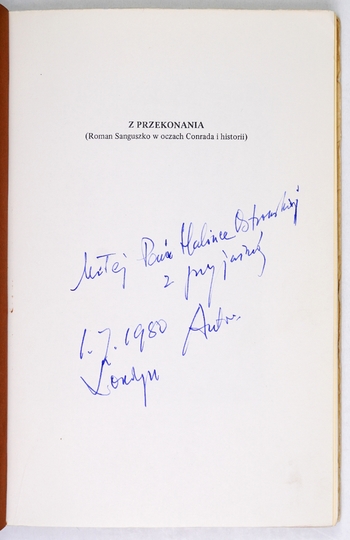 Z PRZEKONANIA
(Roman Sanguszko w oczach Conrada i historii)
Miłej Pani Halince Ostrowskiej
z przyjaźnią
1.7.1980 Autor
Londyn